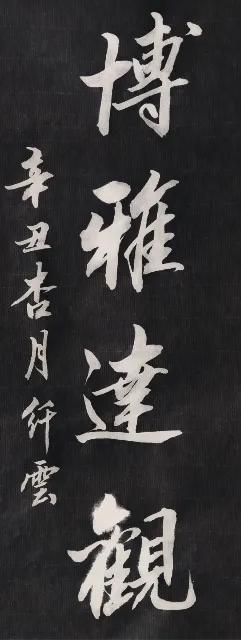 博雅達觀
辛丑杏月纤雲